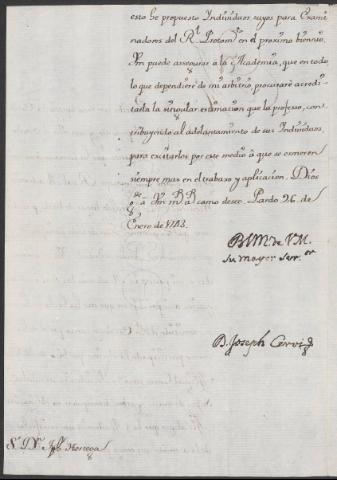 esto he propuesto Individuos suyos para Exami-
nadores del Rl. Protomto. en el proximo biennio.
Vm puede assegurar a la Academia, que en todo
lo que dependiere de mi arbitrio, procuraré acredi-
tarla la singular estimacion que la professo, con-
tribuyendo al adelantamiento de sus Individuos,
para excitarlos por este medio à que se esmeren
siempre mas en el trabajo y aplicacion. Dios
gde. à Vm ms. as. como deseo. Pardo 26 de
Enero de 1743.
BLM. de VM.
su mayor Seror.
D. Joseph Cervi
Sr. Dn. Jph Hortega